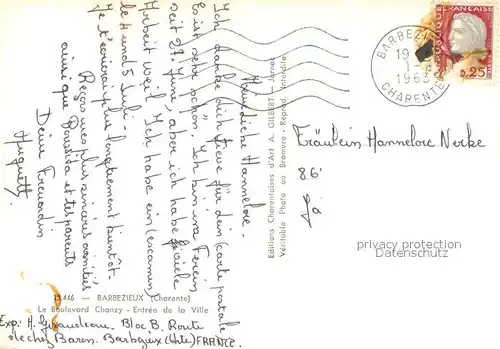 Meine liebe Hannelore.
Ich danke dich sieve für dein (carte postale)
Es ist sehr schön. Ich bin ins Ferein
seit 27. June, aber ich habe viele
Arbeit weil Ich habe ein (examen)
le 4 und 5 Juli-
Je t'écrirai plus longuement bientôt.
Reçois mes plus sincères amitiés
ainsi que Roswita et tes parents
Deine Freundin
Huguette
Editions Charentaises d'Art A. GILBERT - Jarnac
Véritable Photo au Bromure - Reprod. Interdite
BARBEZIEUX
19
1963
CHARENTE
REPUBLIQUE FRANÇAISE
0,25
Fräulein Hannelore Nerke
86
privacy protection
www.ansichtskarten.at
13.446 — BARBEZIEUX (Charente)
Le Boulevard Chanzy - Entrée de la Ville
Exp. H. Giraudeau. Bloc B. Route
de chez Baron. Barbezieux (Chte) FRANCE.